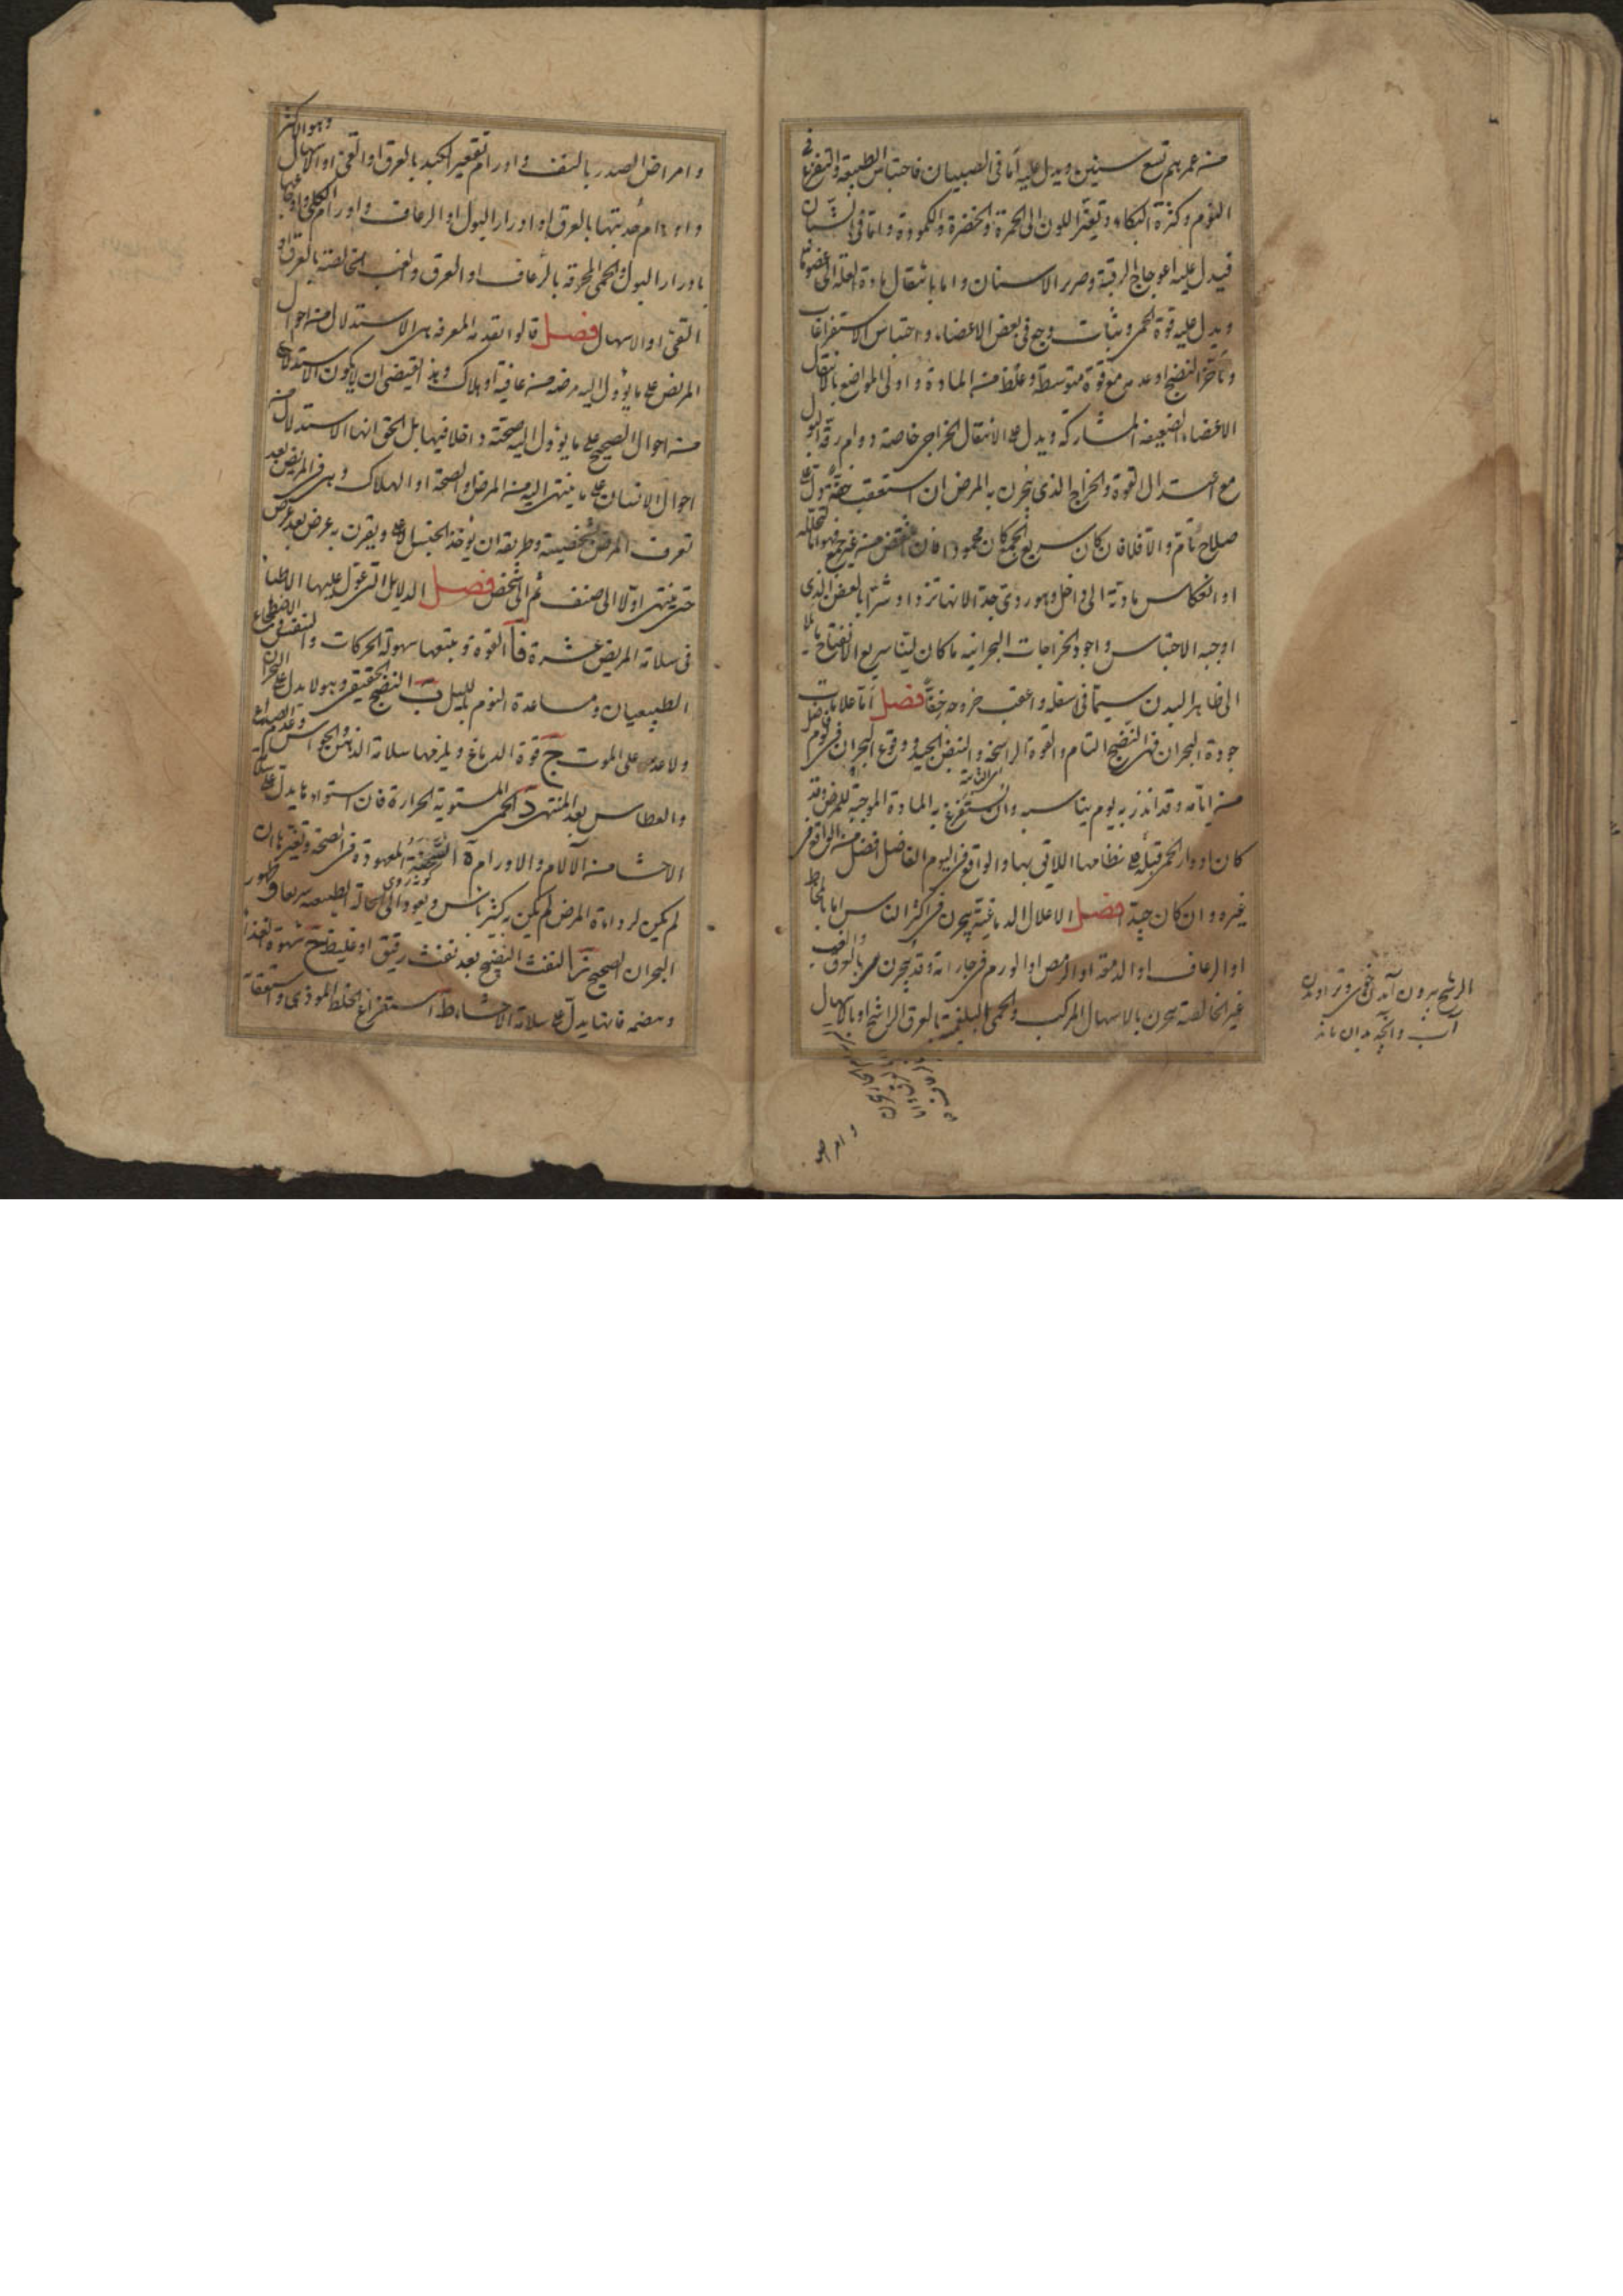 منه عمرهم تسع سنين ويدل عليه اما فى الصبيان فاحتباس الطبيعة والتفزع فى
النوم وكثرة البكاء وتغير اللون الى الحمرة والخضرة والكمودة واما فى الشبان
فيدل عليه اعوجاج الرقبة وصرير الاسنان واما بانتقال مادة العلة الى عضو ما
ويدل عليه قوة الحمى وثبات وجع فى بعض الاعضاء واحتباس الاستفراغات
وتأخر النضج او عدمه مع قوة متوسطة وغلظ من المادة واولى المواضع بالانتقال
الاعضاء الضعيفة المشاركة ويدل على الانتقال الخراجى خاصة دوام رقة البول
مع اعتدال القوة والخراج الذى يبحرن به المرض ان استعقب خفة دل على
صلاح تام والا فلا فان كان سريع الجمع كان محمودا فان غض من غير جمع فهو اما لتحلله
او انعكاس مادته الى داخل وهو ردى جدا لانها تزداد شرا بالعفن الذى
اوجبه الاحتباس واجود الخراجات البحرانية ما كان لينا سريع الانفتاح مائلا
الى ظاهر البدن سيما فى اسفله واعقب خروجه خفا فصل اما علامات
جودة البحران فهى النضج التام والقوة الراسخة والنبض الجيد ووقوع البحران فى يوم فاضل
من ايامه وقد انذر به يوم يناسبه وان يستفرغ به المادة الموجبة للمرض وقد
كان ادوار الحمى قبله على نظامها اللائق بها والواقع فى اليوم الفاضل افضل من الواقع فى
غيره وان كان جيدا فصل الاعلال الدماغية يبحرن فى اكثر الناس اما بالمخاط
او الرعاف او الدمعة او الرمص او الورم فى جاراته وقد يبحرن بالعرق والغب
غير الخالصة يبحرن بالاسهال المركب والحمى البلغمية بالعرق الراشح او بالاسهال
الرشح بيرون آمدن خوى وتراويدن
آب وآنچه بدان ماند
وامر
وهو الاكثر
وامراض الصدر بالنفث واورام تقعير الكبد بالعرق او القئ او الاسهال
واورام حدبتها بالعرق او ادرار البول او الرعاف واورام الكلى واوجاعها
بادرار البول والحمى المحرقة بالرعاف او العرق والغب الخالصة بالعرق او
القئ او الاسهال فصل قالوا تقدمة المعرفة هى الاستدلال من احوال
المريض على ما يؤول اليه مرضه من عافية او هلاك وهذا يقتضى ان لا يكون الاستدلال
من احوال الصحيح على ما يؤول اليه صحته داخلا فيها بل الحق انها الاستدلال من
احوال الانسان على ما ينتهى اليه من المرض او الصحة او الهلاك وهى فى المريض بعد
تعرف المرض بخصيصته وطريقه ان يؤخذ الجنس الاعلى ويقرن به عرض بعد عرض
حتى ينتهى اولا الى صنف ثم الى شخص فصل الدلايل التى عول عليها الاطباء
فى سلامة المريض عشرة فآ القوة ويتبعها سهولة الحركات والتنفس والاضطجاع
الطبيعيان ومساعدة النوم بالليل ب النضج الحقيقى وهو لا يدل على البحران
ولا عدمه على الموت ج قوة الدماغ ويلزمها سلامة الذهن والحواس وعدم الصداع
والعطاس بعد المنتهى د الحمى المستوية الحرارة فان استواءها يدل على سلامة
الاحشا من الآلام والاورام ه السحنة المعهودة فى الصحة وتغيرها ان
لم يكن لرداءة المرض لم يكن به كثير باس ويعود الى الحالة الطبيعية سريعا و ظهور
البحران الصحيح ز النفث النضيج بعد نفث رقيق او غليظ ح شهوة الغذاء
وهضمه فانها يدل على سلامة الاحشاء ط استفراغ الخلط الموذى واستعقابه